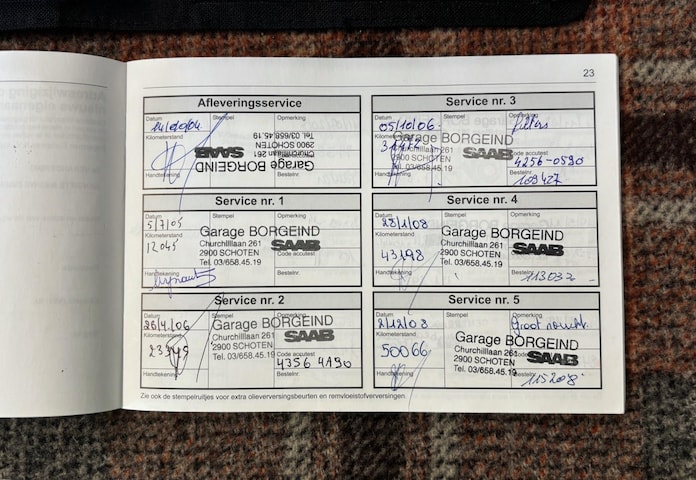 23
Afleveringsservice
Datum Stempel Opmerking
Kilometerstand
Garage BORGEIND
Churchilllaan 261
2900 SCHOTEN
Tel. 03/658.45.19
SAAB
Handtekening Bestelnr.
Service nr. 1
Datum Stempel Opmerking
5/7/05
Kilometerstand
12045
Garage BORGEIND
Churchilllaan 261
2900 SCHOTEN
Tel. 03/658.45.19
SAAB
Code accutest
Handtekening Bestelnr.
Service nr. 2
Datum Stempel Opmerking
26/4/06
Kilometerstand
Garage BORGEIND
Churchilllaan 261
2900 SCHOTEN
Tel. 03/658.45.19
SAAB
Code accutest
4356 4A90
Handtekening Bestelnr.
Service nr. 3
Datum Stempel Opmerking
05/10/06 filters
Kilometerstand
Garage BORGEIND
Churchilllaan 261
2900 SCHOTEN
Tel. 03/658.45.19
SAAB
Code accutest
4256-0590
Handtekening Bestelnr.
109427
Service nr. 4
Datum Stempel Opmerking
28/1/08
Kilometerstand
43198
Garage BORGEIND
Churchilllaan 261
2900 SCHOTEN
Tel. 03/658.45.19
SAAB
Handtekening Bestelnr.
113032
Service nr. 5
Datum Stempel Opmerking
2/12/08 Groot
Kilometerstand
50066
Garage BORGEIND
Churchilllaan 261
2900 SCHOTEN
Tel. 03/658.45.19
SAAB
Handtekening Bestelnr.
1152008
Zie ook de stempelruitjes voor extra olieverversingsbeurten en remvloeistofverversingen.